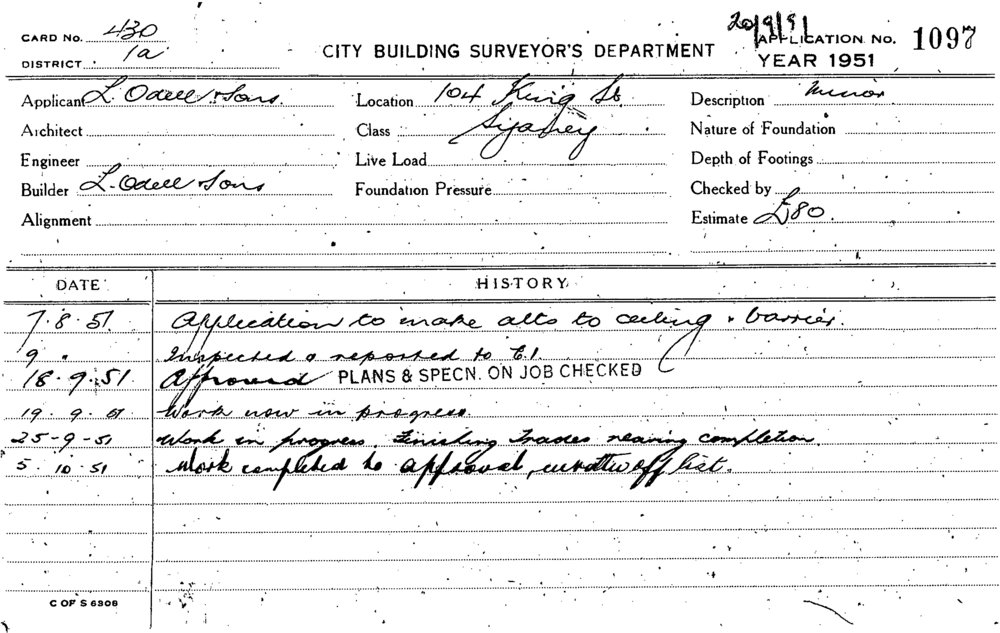 CARD No. 430
DISTRICT 1a
CITY BUILDING SURVEYOR'S DEPARTMENT
20/9/91
APPLICATION No. 1097
YEAR 1951
Applicant L. Odell & Sons.
Location 104 King St.
Description Minor
Architect
Class Sydney
Nature of Foundation
Engineer
Live Load
Depth of Footings
Builder L. Odell & Sons
Foundation Pressure
Checked by
Alignment
Estimate £80.
DATE HISTORY
7.8.51 Application to make alts to ceiling & barrier.
9 " Inspected & reported to C.I.
18.9.51 Approved PLANS & SPECN. ON JOB CHECKED
19.9.51 Work now in progress.
25-9-51 Work in progress. Finishing Trades nearing completion.
5.10.51 Work completed to approval, written off list.
C OF S 6308